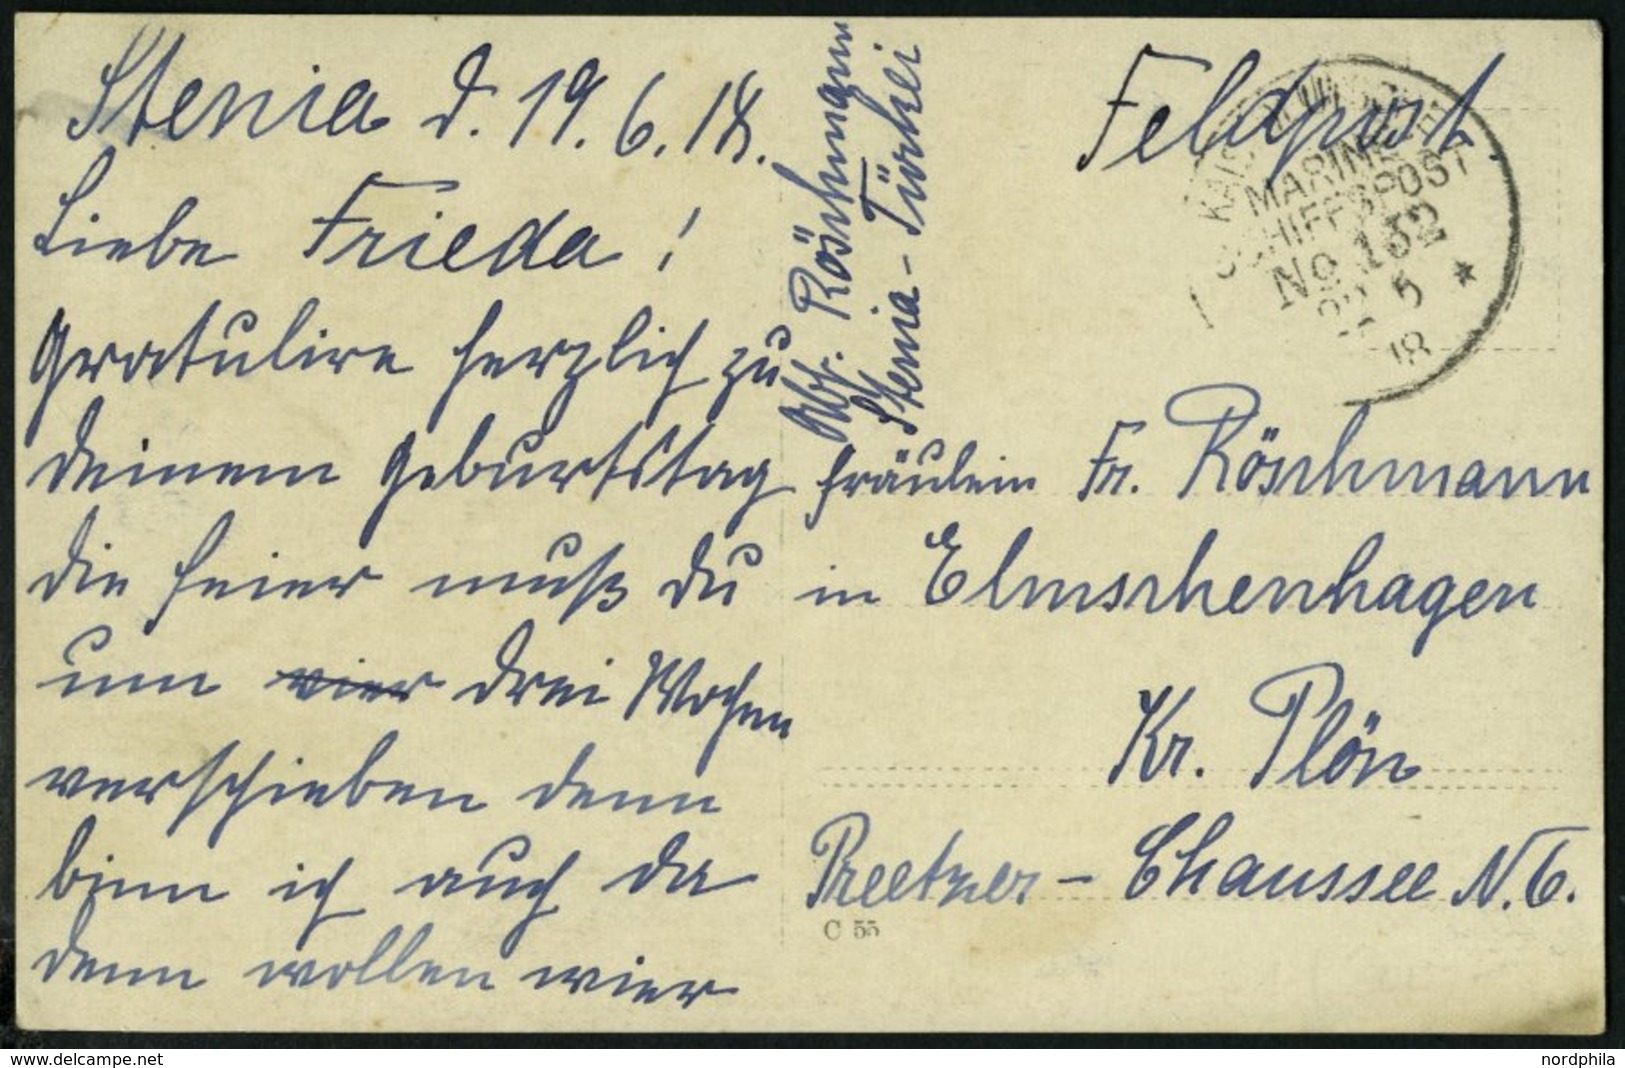 Stenia d. 19. 6. 18.
Liebe Frieda!
Gratulire herzlich zu
deinem Geburtstag
die Feier muß du
um vier drei Wochen
verschieben denn
binn ich auch da
denn wollen wier
Abs. Röschmann
Stenia - Türkei
Feldpost.
MARINE
SCHIFFSPOST
No 132
5
18
Fräulein Fr. Röschmann
in Elmschenhagen
Kr. Plön
Preetzer - Chaussee N. 6.
C 55
www.delcampe.net
nordphila